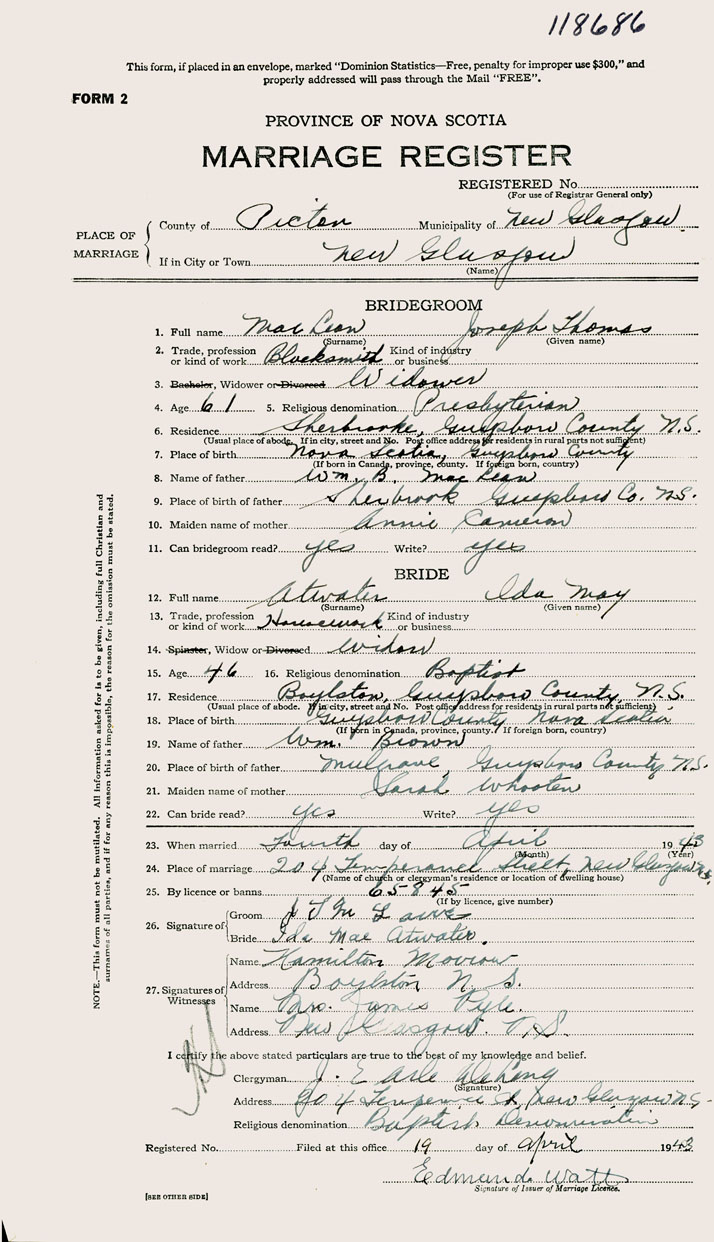 118686
This form, if placed in an envelope, marked "Dominion Statistics—Free, penalty for improper use $300," and
properly addressed will pass through the Mail "FREE".
FORM 2
PROVINCE OF NOVA SCOTIA
MARRIAGE REGISTER
REGISTERED No.
(For use of Registrar General only)
PLACE OF MARRIAGE
County of Picton Municipality of New Glasgow
If in City or Town New Glasgow
(Name)
BRIDEGROOM
1. Full name MacLean Joseph Thomas
(Surname) (Given name)
2. Trade, profession or kind of work Blacksmith Kind of industry or business
3. Bachelor, Widower or Divorced Widower
4. Age 61 5. Religious denomination Presbyterian
6. Residence Sherbrooke, Guysboro County N.S.
(Usual place of abode. If in city, street and No. Post office address for residents in rural parts not sufficient)
7. Place of birth Nova Scotia, Guysboro County
(If born in Canada, province, county. If foreign born, country)
8. Name of father Wm. B. MacLean
9. Place of birth of father Sherbrook Guysboro Co. N.S.
10. Maiden name of mother Annie Cameron
11. Can bridegroom read? yes Write? yes
BRIDE
12. Full name Atwater Ida May
(Surname) (Given name)
13. Trade, profession or kind of work Housework Kind of industry or business
14. Spinster, Widow or Divorced Widow
15. Age 46 16. Religious denomination Baptist
17. Residence Boylston, Guysboro County, N.S.
(Usual place of abode. If in city, street and No. Post office address for residents in rural parts not sufficient)
18. Place of birth Guysboro County Nova Scotia
(If born in Canada, province, county. If foreign born, country)
19. Name of father Wm. Brown
20. Place of birth of father Mulgrave, Guysboro County N.S.
21. Maiden name of mother Sarah Whooten
22. Can bride read? yes Write? yes
23. When married Fourth day of April 1943
(Month) (Year)
24. Place of marriage 204 Temperance Street, New Glasgow N.S.
(Name of church or clergyman's residence or location of dwelling house)
25. By licence or banns 65845
(If by licence, give number)
26. Signature of
Groom J T
Bride Ida Mae Atwater.
27. Signatures of Witnesses
Name Hamilton Morrow
Address Boylston N.S.
Name Mrs. James Pyle.
Address New Glasgow. N.S.
I certify the above stated particulars are true to the best of my knowledge and belief.
Clergyman J. E. Arle
(Signature)
Address 204 Temperance St, New Glasgow N.S.
Religious denomination Baptist Denomination
Registered No. Filed at this office 19 day of April 1943
Edmund Watt
Signature of Issuer of Marriage Licence.
[SEE OTHER SIDE]
NOTE.—This form must not be mutilated. All information asked for is to be given, including full Christian and
surnames of all parties, and if for any reason this is impossible, the reason for the omission must be stated.